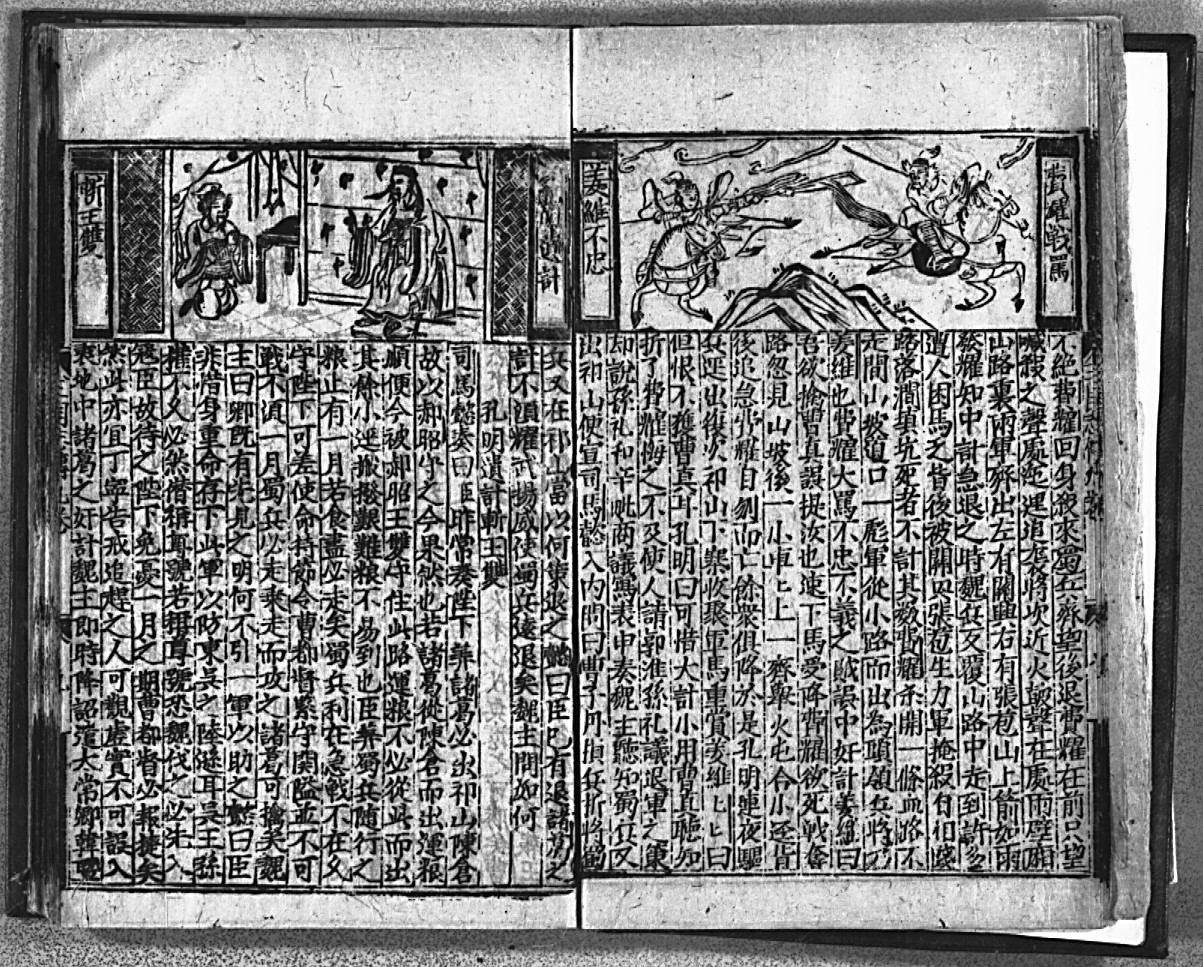 費耀戰罵
姜維不忠
不絕費耀回身殺來蜀兵齊望後退費耀在前只望
喊殺之聲處迤邐追
山路裏兩軍齊出左有關興右有張苞山上箭如雨
發耀知中計急退之時魏兵交覆山路中走到許多
遭人困馬乏背後被關興張苞生力軍掩殺自相踐
路落澗填坑死者不計其數費耀殺開一條血路不
走間山坡道口一彪軍從小路而出為頭領兵將乃
姜維也費耀大罵不忠不義之賊誤中奸計姜維曰
吾欲擒曹真誤捉汝也速下馬受降費耀欲死戰奮
路忽見山坡後一小車上上一齊舉火屯合小逕皆
後追急費耀自刎而亡餘眾俱降於是孔明連夜驅
兵逕出復次祁山下寨收聚軍馬重賞姜維上上曰
但恨不獲曹真耳孔明曰可惜大計小用曹真聽知
折了費耀悔之不及使人請郭淮孫礼議退軍之策
却說孫礼和辛毗商議寫表申奏魏主聽知蜀兵又
出祁山便宣司馬懿入內問曰曹子丹損兵折將蜀
遺計
斬王雙
兵又在祁山當以何策退之懿曰臣已有退諸葛之
計不須耀武揚威使蜀兵遠退矣魏主問如何
孔明遺計斬王雙
司馬懿奏曰臣昨常奏陛下葬諸葛必出祁山陳倉
故以郝昭守之今果然也若諸葛從陳倉而出運粮
順便今被郝昭王雙守住此路運粮不必從此而出
其餘小逕搬撥艱難粮不易到也臣葬蜀兵隨行之
粮止有一月若食盡必走矣蜀兵利在急戰不在久
守陛下可差使命持節令曹都督緊守関隘並不可
戰不須一月蜀兵必走乘走而攻之諸葛可擒矣魏
主曰卿既有先見之明何不引一軍以助之懿曰臣
非惜身重命存下此軍以防東吳之陸遜耳吳王孫
權不久必然僭稱尊號若稱尊號恐魏伐之必先入
寇臣故待之陛下免憂一月之期曹都督必報捷矣
然此亦宜丁寧告戒追趕之人可觀虛實不可誤入
衷地中諸葛之奸計魏主即時降詔遣大常卿韓